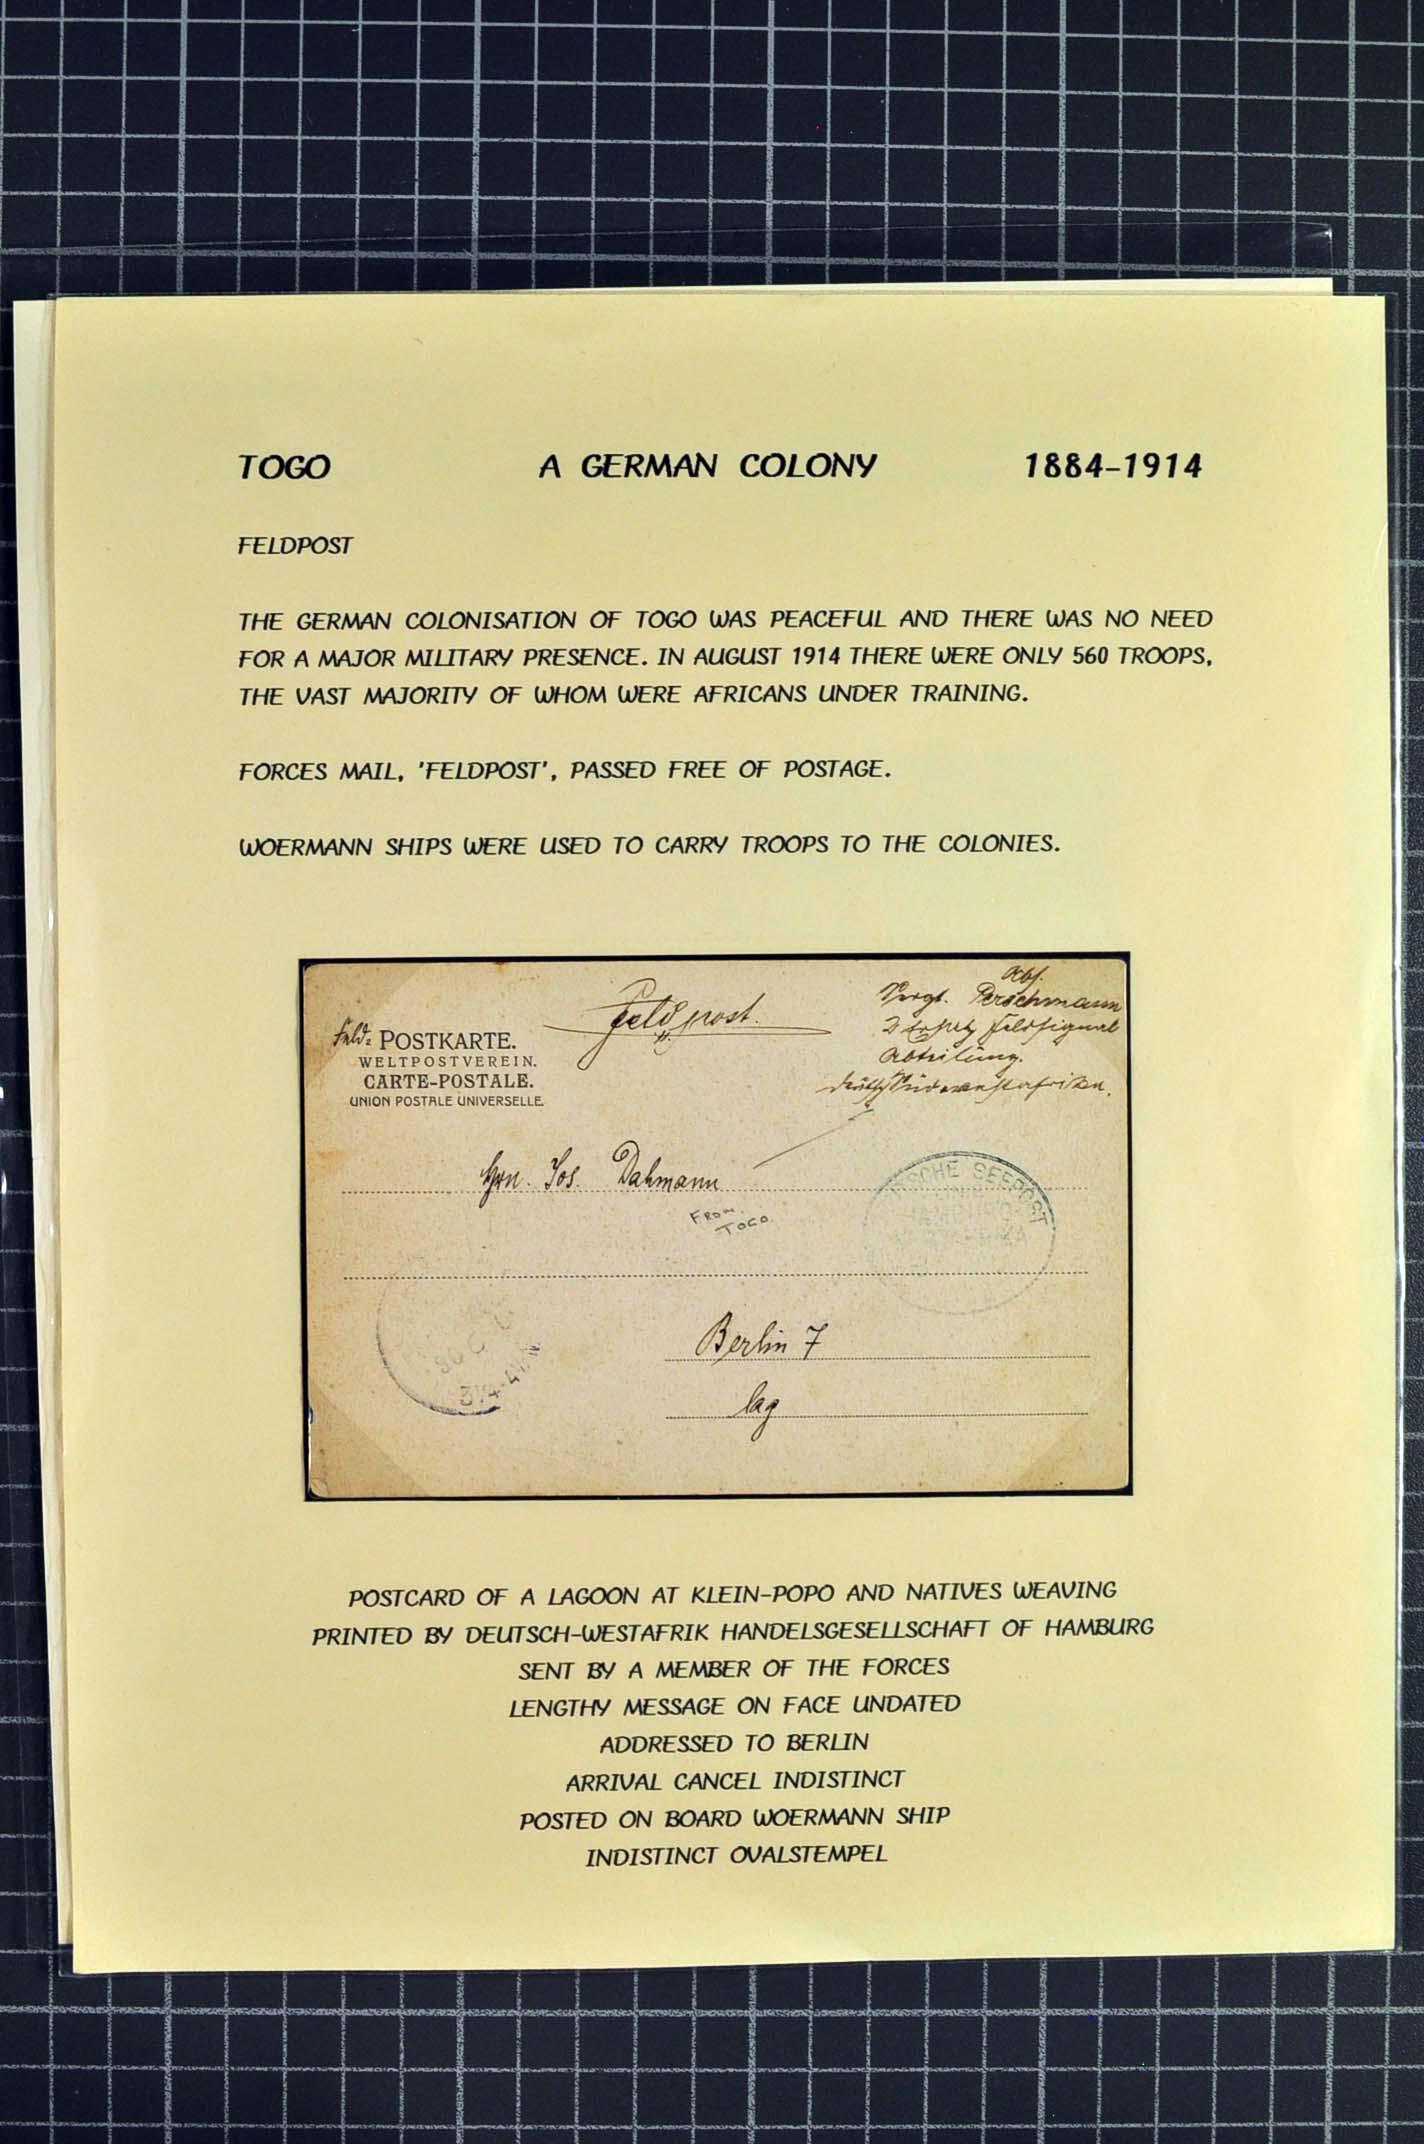 TOGO A GERMAN COLONY 1884-1914
FELDPOST
THE GERMAN COLONISATION OF TOGO WAS PEACEFUL AND THERE WAS NO NEED
FOR A MAJOR MILITARY PRESENCE. IN AUGUST 1914 THERE WERE ONLY 560 TROOPS,
THE VAST MAJORITY OF WHOM WERE AFRICANS UNDER TRAINING.
FORCES MAIL, 'FELDPOST', PASSED FREE OF POSTAGE.
WOERMANN SHIPS WERE USED TO CARRY TROOPS TO THE COLONIES.
Abs.
Feldpost. Perschmann
Feld= POSTKARTE. Feldsignal
WELTPOSTVEREIN. Abteilung.
CARTE-POSTALE. Südwestafrika.
UNION POSTALE UNIVERSELLE
Hrn. Jos. Dahmann
FROM
TOGO
SCHE SEEPOST
Berlin 7
lag
POSTCARD OF A LAGOON AT KLEIN-POPO AND NATIVES WEAVING
PRINTED BY DEUTSCH-WESTAFRIK HANDELSGESELLSCHAFT OF HAMBURG
SENT BY A MEMBER OF THE FORCES
LENGTHY MESSAGE ON FACE UNDATED
ADDRESSED TO BERLIN
ARRIVAL CANCEL INDISTINCT
POSTED ON BOARD WOERMANN SHIP
INDISTINCT OVALSTEMPEL